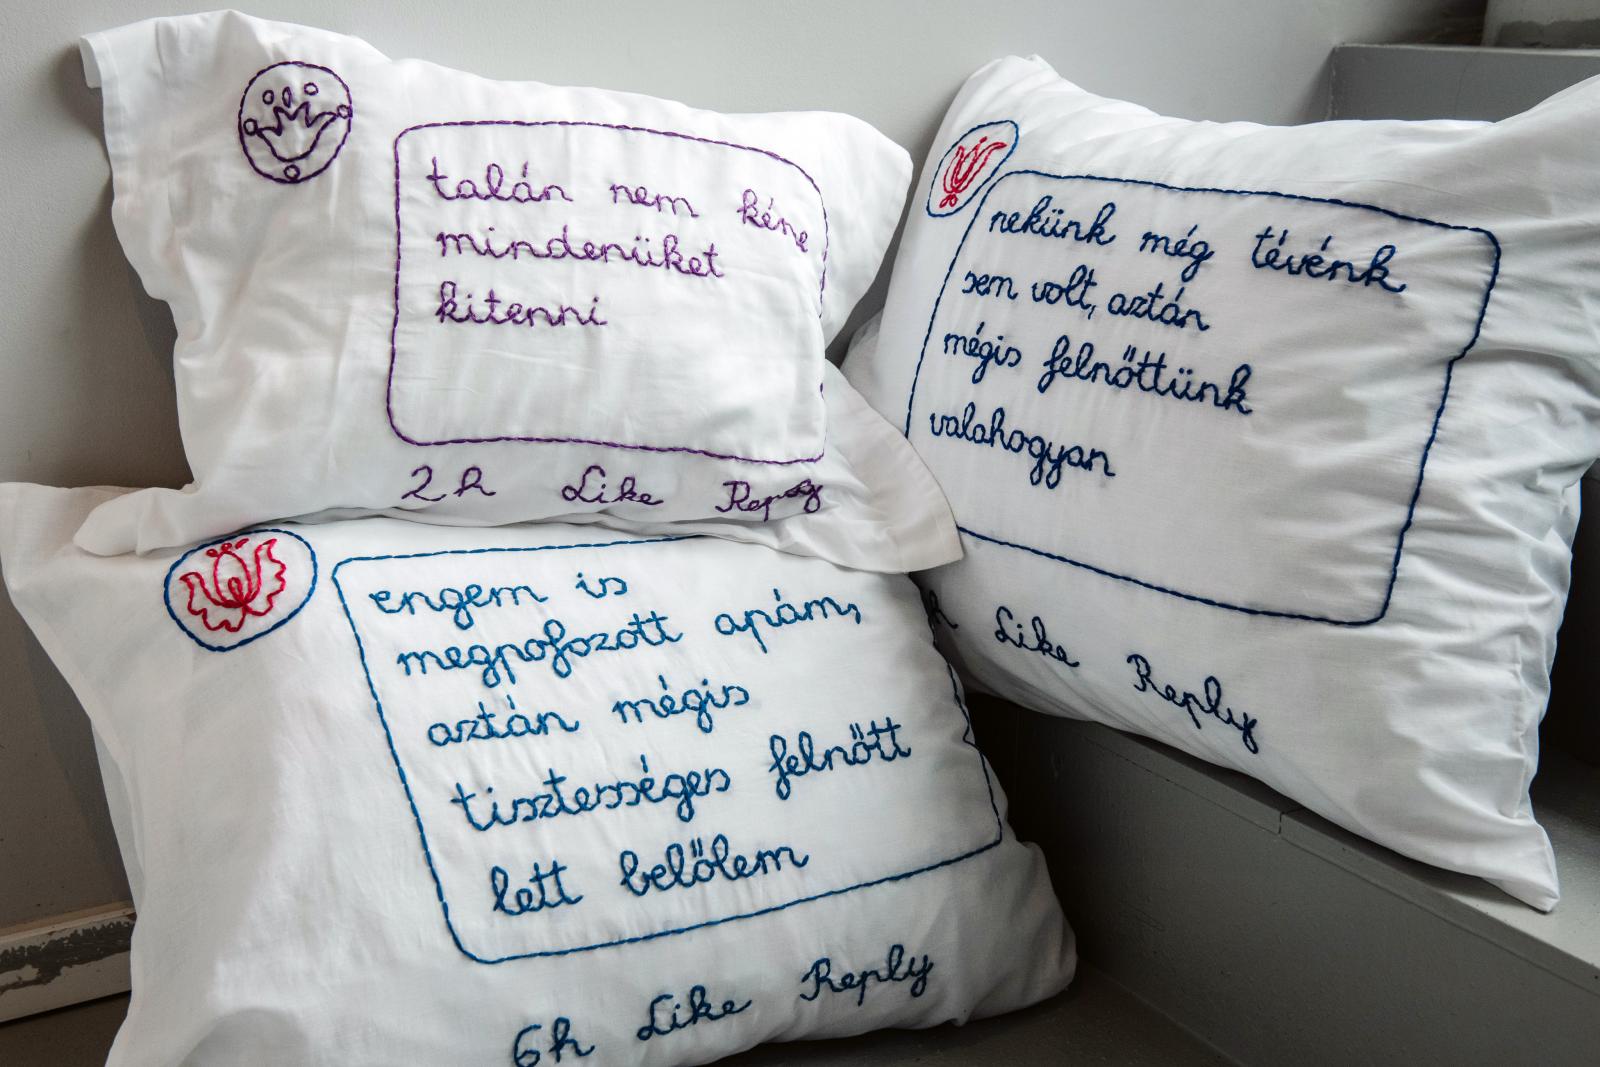 talán nem kéne
mindenüket
kitenni
2h Like Reply
nekünk még tévénk
sem volt, aztán
mégis felnőttünk
valahogyan
h Like Reply
engem is
megpofozott apám,
aztán mégis
tisztességes felnőtt
lett belőlem
6h Like Reply